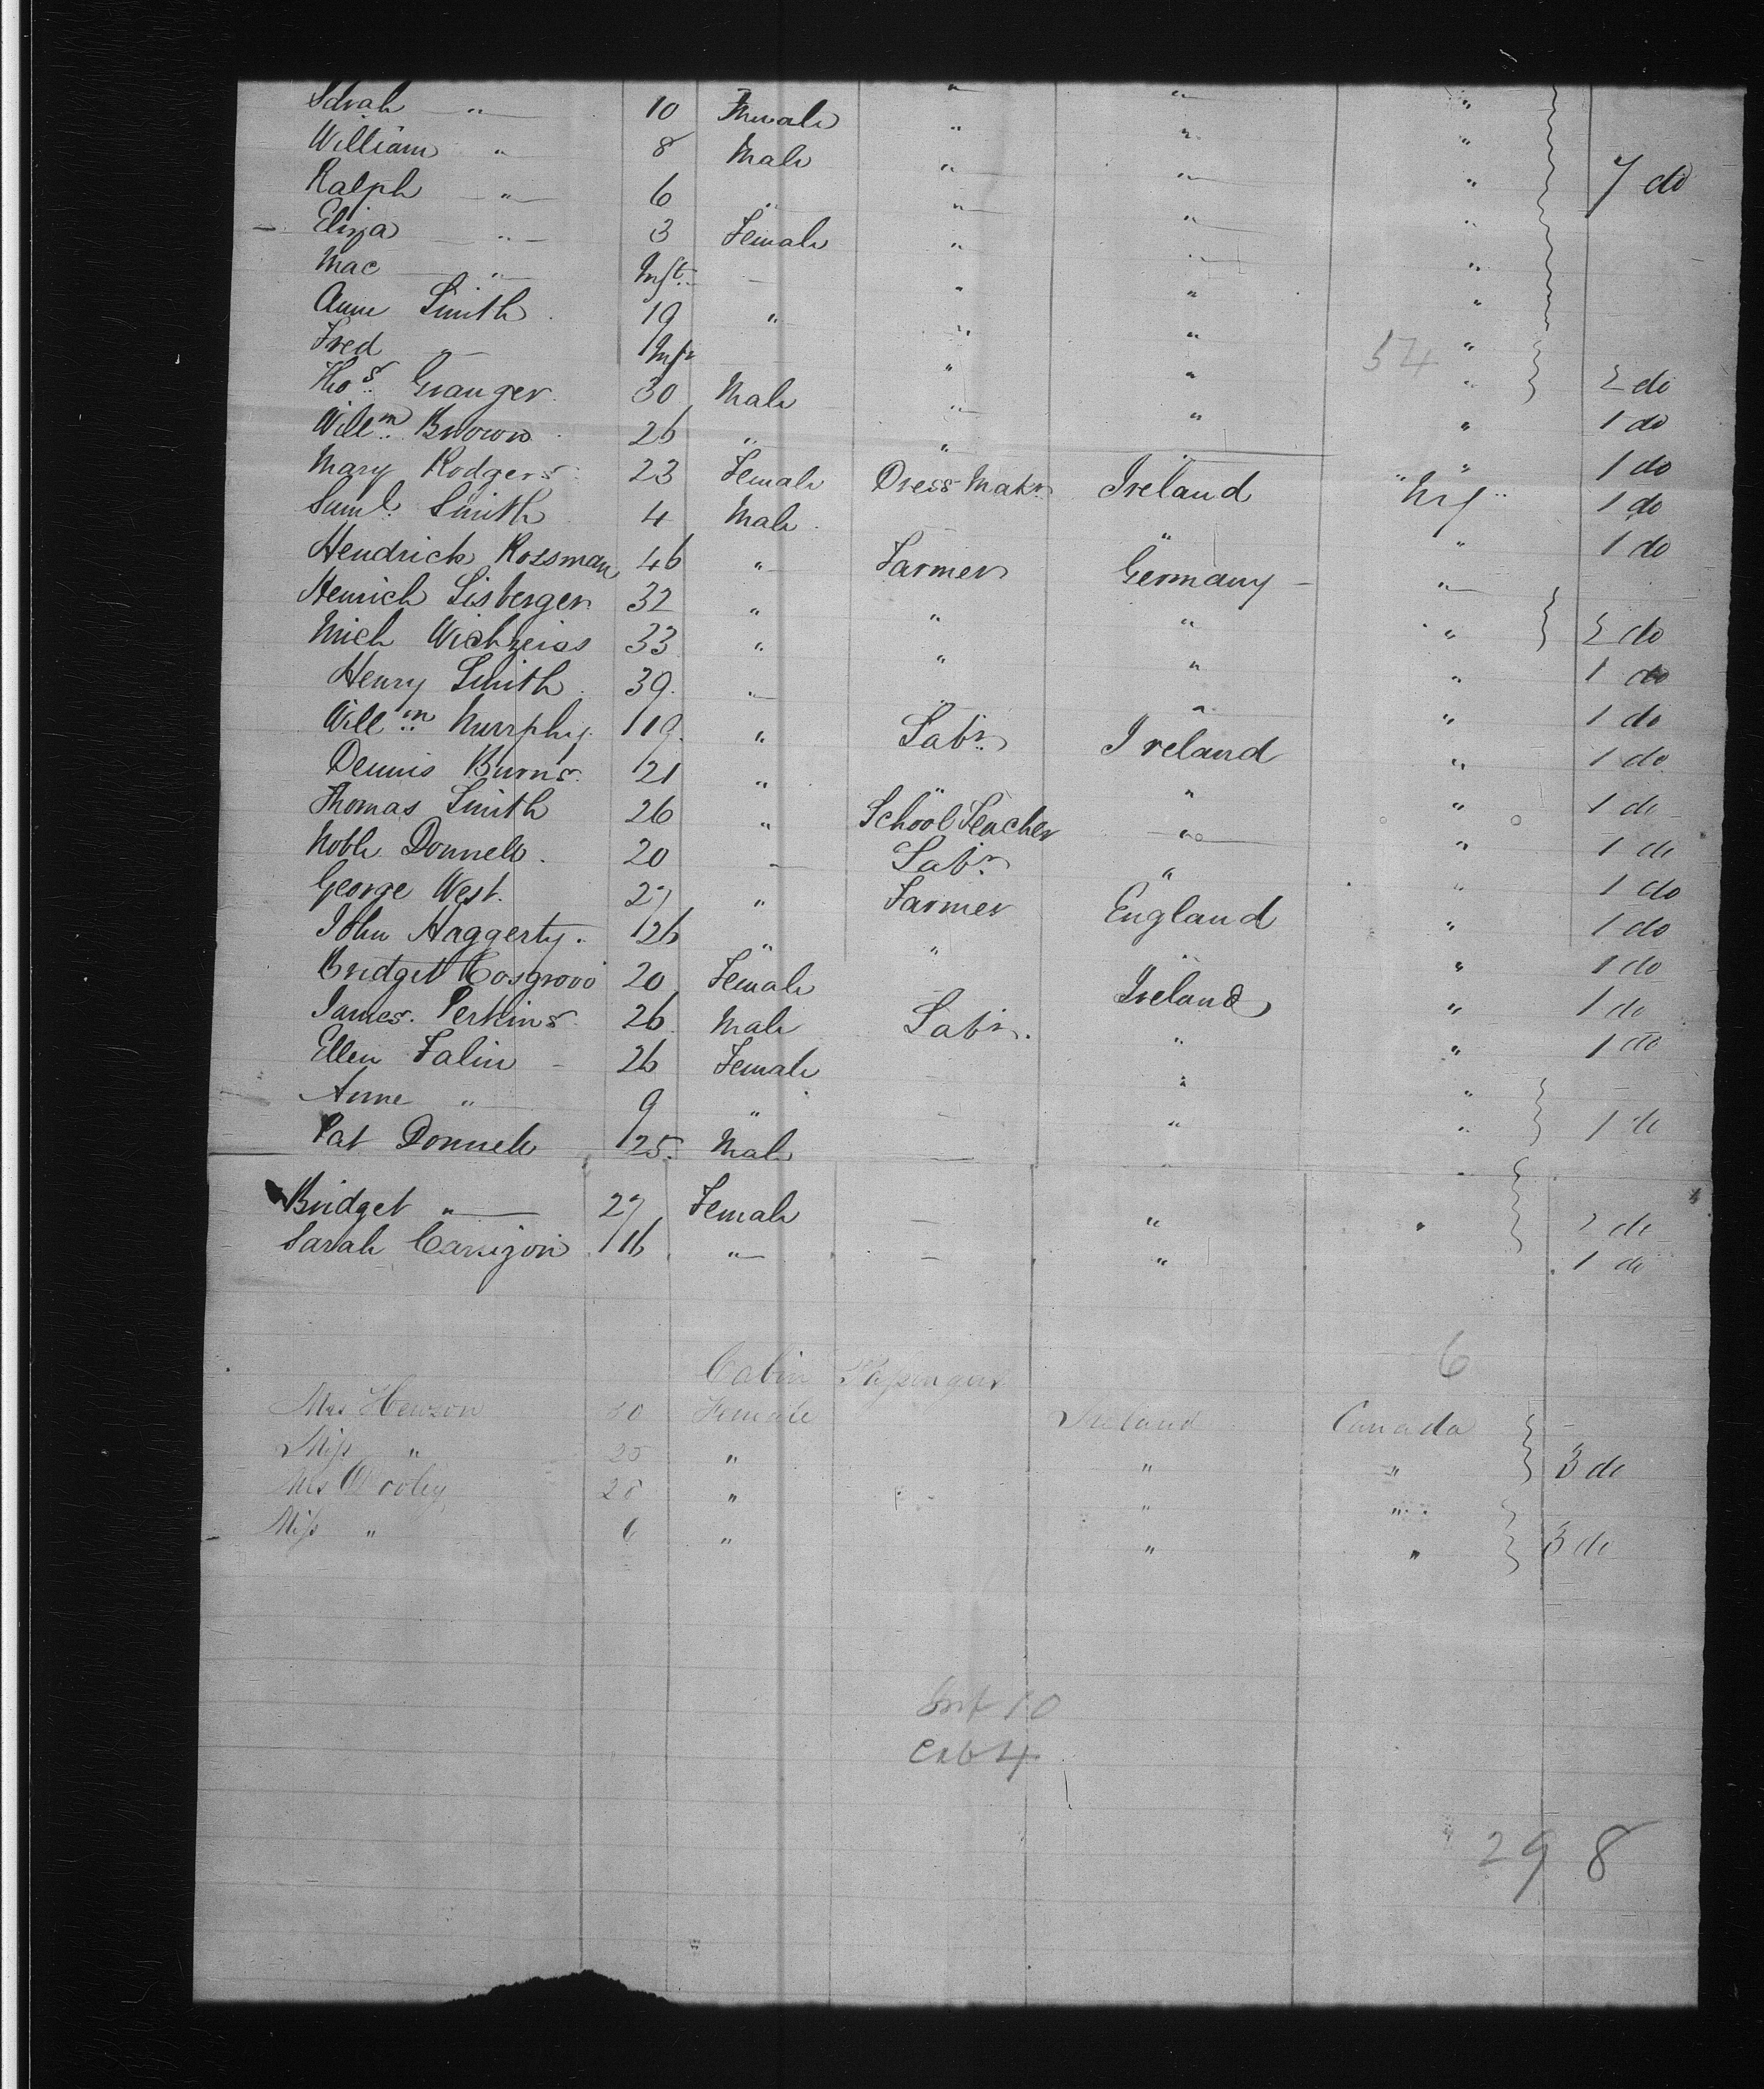 Sarah " 10 Female " " "
William " 8 Male " " " 7 do
Ralph " 6 " " " "
Eliza " 3 Female " " "
Mac " Inft - " " "
Anne Smith 19 " " " "
Fred " Inft " " 54 "
Thos Granger 30 Male " " " 2 do
Willm Brown 26 " " " " 1 do
Mary Rodgers 23 Female Dress Makr Ireland " 1 do
Saml Smith 4 Male " " 1 do
Hendrick Rossman 46 " Farmer Germany " 1 do
Henrich Lisberger 32 " " " "
Mich 33 " " " " 2 do
Henry Smith 39 " " " " 1 do
Willm Murrphy 19 " Labr Ireland " 1 do
Dennis Burns 21 " " " " 1 do
Thomas Smith 26 " School Teacher " " 1 do
Noble Donnell 20 " Labr " " 1 do
George West 27 " Farmer England " 1 do
John Haggerty 26 " " " " 1 do
Bridget Cosgrove 20 Female Ireland " 1 do
James Perkins 26 Male Labr " " 1 do
Ellen Falin 26 Female - " " 1 do
Anne " 9 " - " "
Pat Donnell 25 Male - " " 1 do
Bridget " 27 Female - " " 2 do
Sarah 16 " - " 1 do
6
Cabin Passengers
Mrs Hewson 50 Female Ireland Canada
Miss " 20 " " " 3 do
Mrs 28 " " "
Miss " 6 " " " 3 do
Inft 10
Cab 4
298